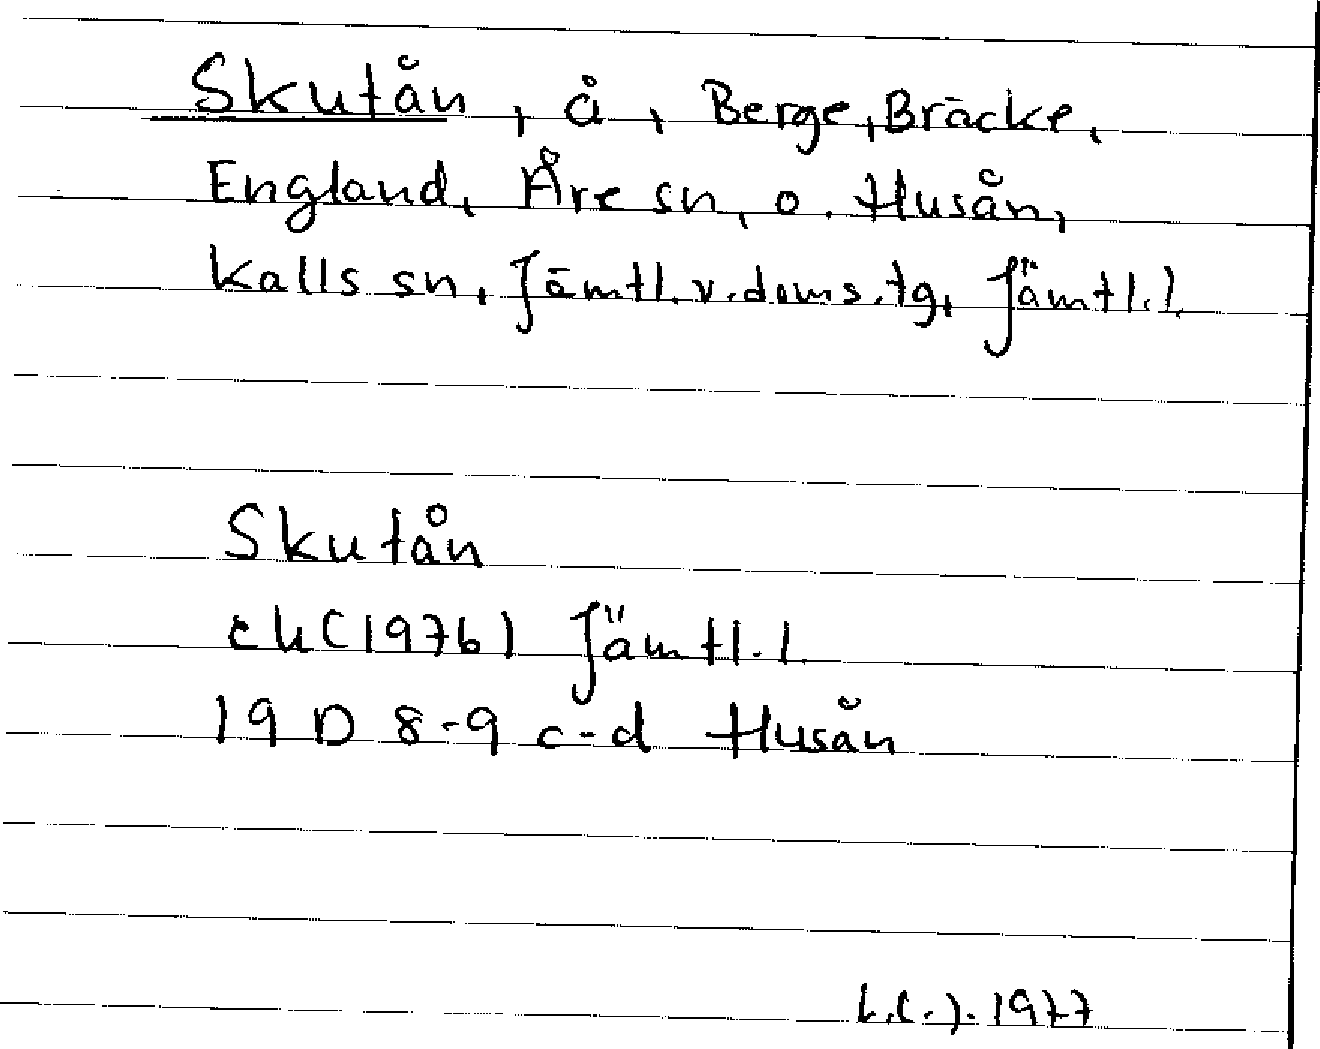 Skutån, å, Berge, Bräcke,
England, Åre sn, o. Husån,
Kalls sn, Jämtl. v. doms. tg, Jämtl. l.
Skutån
ek (1976) Jämtl. l.
19 D 8-9 c-d Husån
1977